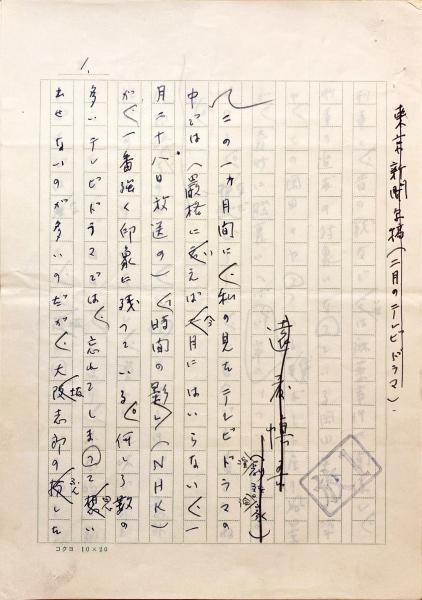 東京新聞原稿(二月のテレビドラマ)
遠藤慎吾
1.
この一カ月間に、私の見たテレビドラマの
中では(厳格に云えば今月にはいらない、一
月二十八日放送の)「時間の影」(NHK)
が、一番強く印象に残っている。何しろ数の
多いテレビドラマでは、忘れてしまって想い
出せないのが多いのだが、大阪志郎の扮した
い
今
思
坂
ふん
コクヨ 10×20